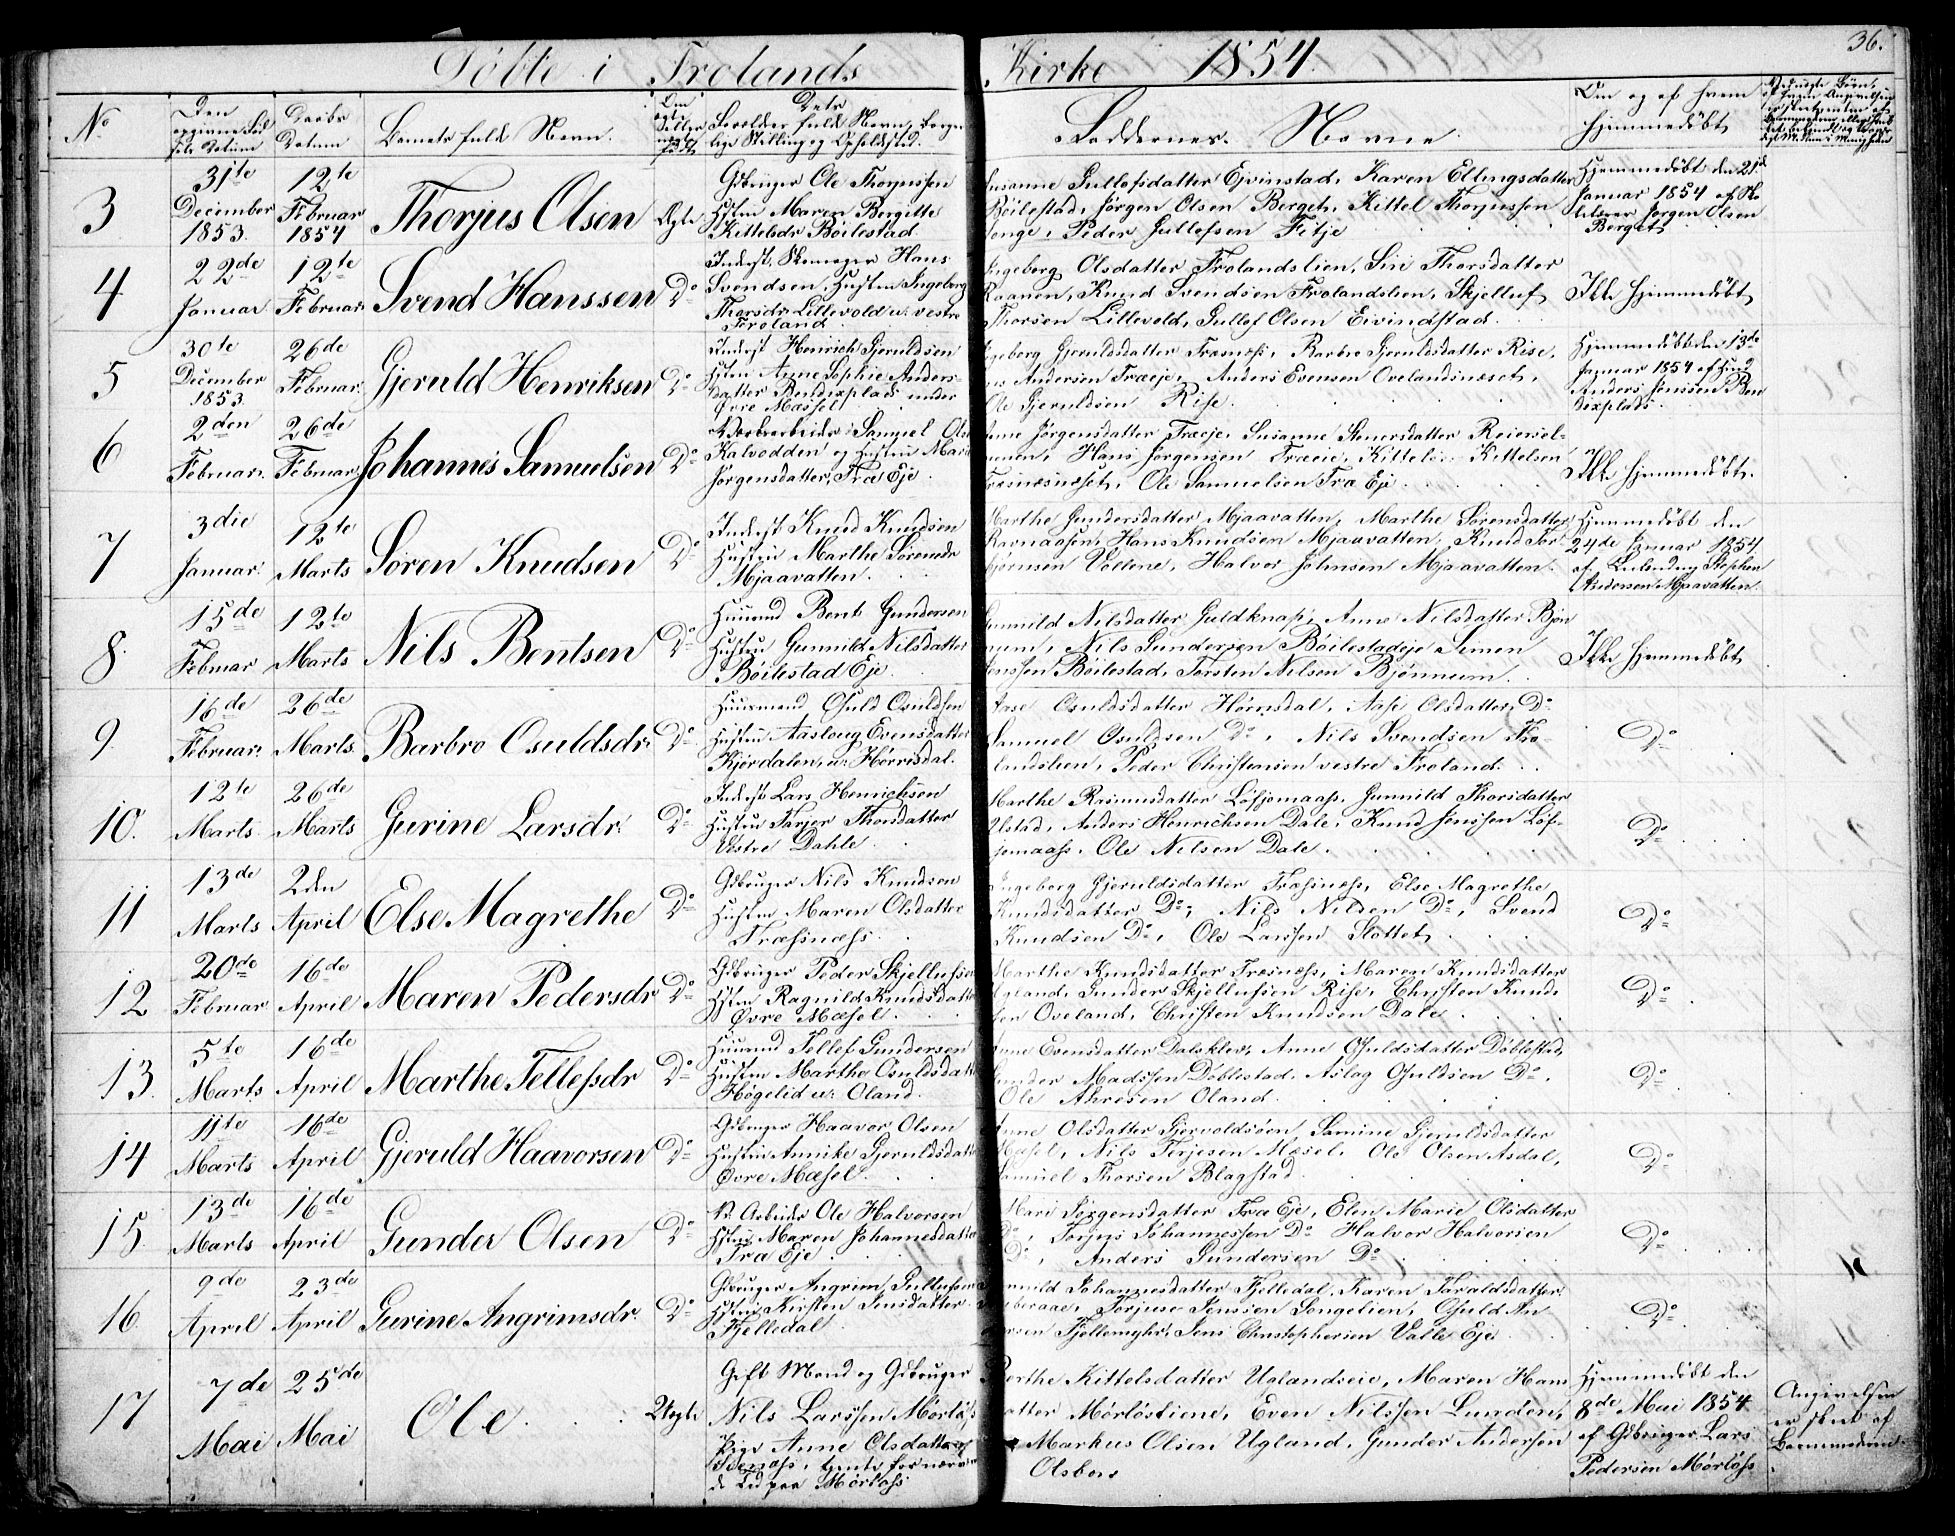 Døbte i Frolands Kirke 1854.
36.
No
Den opgivne Fødsels Datum
Daabs Datum
Barnets fulde Navn.
Forældres fulde Navn, borgerlige Stilling og Opholdsted.
Faddernes Navne
Om og af hvem hjemmedøbt
3
31te December 1853.
12te Februar 1854
Thorjus Olsen
Ægte
Gdbruger Ole Thorjussen
Hstru Maren Bergitte
Kittelsdr Bøilestad
Susanne Gullofsdatter Eivinstad, Karen Ellingsdatter
Bøilestad, Jørgen Olsen Berget, Kittel Thorjussen
Songe, Peder Gullefsen Fitje
Hjemmedøbt den 21de
Januar 1854 af Skoleholderer Jørgen Olsen
Berget
4
22de Januar
12te Februar
Svend Hanssen
Do
Inderst, Skomager Hans
Svendsen, Hustru Ingeborg
Thorsdr Lillevold u. vestre
Froland
Ingeborg Olsdatter Frolandslien, Siri Thorsdatter
Raanen, Knud Svendsen Frolandslien, Skjelluf
Thorsen Lillevold, Gullef Olsen Eivindstad.
Ikke hjemmedøbt
5
30te December 1853.
26de Februar
Gjeruld Henriksen
Do
Inderst Henrich Gjeruldsen
Hstru Anne Sophie Andersdatter Bendixplads under
Øvre Mæssel
Ingeborg Gjeruldsdatter Træsnæss, Barbro Gjeruldsdatter Rise,
Andersen Træeje, Anders Evensen Ovelandsnæset,
Ole Gjeruldsen Rise.
Hjemmedøbt den 13de
Januar 1854 af Hmd
Anders Jenssen Bendixplads.
6
2den Februar.
26de Februar
Johannes Samuelsen
Do
Værkarbeider Samuel Olsen
Kalvodden og Hustru Mari
Jørgensdatter, Træ Eje
Anne Jørgensdatter Træeje, Susanne Stenersdatter Reierselmoen, Hans Jørgensen Træeie, Kittel Kittelsen
Træsnæsnæset, Ole Samuelsen Træ Eje
Ikke hjemmedøbt.
7
3die Januar.
12te Marts
Søren Knudsen
Do
Inderst Knud Knudsen
Hustru Marthe Sørensdr
Mjaavatten.
Marthe Gundersdatter Mjaavatten, Marthe Sørensdatter
Ravnaasen, Hans Knudsen Mjaavatten, Knud Torbjørnsen Vollene, Halvor Johnsen Mjaavatten.
Hjemmedøbt den
24de Januar 1854
af Stephen
Andersen Mjaavatten.
8
15de Februar
12te Marts
Nils Bentsen
Do
Huusmd Bent Gundersen
Hustru Gunnild Nilsdatter
Bøilestad Eje
Gunnild Nilsdatter Guldknap, Anne Nilsdatter Bjønnum, Nils Gundersen Bøilestadeje Simen
Jenssen Bøilestad, Torsten Nilsen Bjønnum.
Ikke hjemmedøbt
9
16de Februar.
26de Marts
Barbro Osuldsdr.
Do
Huusmand Osuld Osuldsen
Hustru Aasloug Evensdatter
Kjørdalen, u. Hørrisdal.
Aase Osuldsdatter Hørrisdal, Aase Olsdatter Do
Samuel Osuldsen Do, Nils Svendsen Frolandslien, Peder Christensen vestre Froland.
Do
10.
12te Marts
26de Marts
Gurine Larsdr.
Do
Inderst Lars Henrichsen
Hustru Torjer Thorsdatter
Vestre Dahle.
Marthe Rasmusdatter Løfjomaass, Gunnild Thorsdatter
Ulstad, Anders Henrichsen Dale, Knud Jenssen Løfjomaass, Ole Nilsen Dale.
Do
11
13de Marts
2den April
Else Magrethe
Do
Gdbruger Nils Knudsen
Hustru Maren Olsdatter
Træsnæss.
Ingeborg Gjeruldsdatter Træsnæss, Else Magrethe
Knudsdatter Do, Nils Nilsen Do, Svend
Knudsen Do, Ole Larssen Slottet
Do
12
20de Februar
16de April
Maren Pedersdr
Do
Gdbruger Peder Skjellufsen
Hstru Ragnild Knudsdatter
Øvre Mæsel.
Marthe Knudsdatter Træsnæss, Maren Knudsdatter
Ugland, Gunder Skjellufsen Rise, Christen Knudsen Oveland, Christen Knudsen Dale
Do
13.
5te Marts
16de April
Marthe Tellefsdr
Do
Huusmd Tellef Gundersen
Hustru Marthe Osuldsdatter
Høgelid u. Oland
Anne Evensdatter Dalsklev, Anne Osuldsdatter Døblestad,
Gunder Madssen Døblestad, Aslag Osuldsen Do,
Ole Ahresen Oland.
Do
14
11te Marts
16de April
Gjeruld Haavorsen
Do
Gdbruger Haavor Olsen
Hustru Annike Gjeruldsdatter
Øvre Mæsel.
Anne Olsdatter Gjervoldsøen, Samine Gjeruldsdatter
Mæsel, Nils Terjesen Mæsel, Ole Olsen Asdal,
Samuel Thorsen Blagstad
Do
15.
13de Marts
16de April
Gunder Olsen
Do
V. Arbeider Ole Halvorsen
Hstru Maren Johannesdatter
Træ Eje
Mari Jørgensdatter Træ Eje, Elen Marie Olsdatter
Do, Torjus Johannessen Do Halvor Halvorsen
Do, Anders Gundersen Do
Do
16.
9de April
23de April
Gurine Angrimsdr.
Do
Gdbruger Angrim Gullufsen
Hustru Kirsten Jensdatter
Fjelledal
Gunnild Johannesdatter Fjelledal, Karen Haraldsdatter
Torjus Jenssen Songelien, Osuld
Fjellemyhr, Jens Christophersen Valle Eje
Do
17
7de Mai
25de Mai
Ole
Uægte
Gift Mand og Gdbruger
Nils Larssen Mørløs
Pige Anne Olsdatter
tjente for nærværende Tid paa Mørløss
Berthe Kittelsdatter Uglandseie, Maren Hansdatter Mørløstiene, Even Nilssen Lunden,
Markus Olsen Ugland, Gunder Andersen
Olsbero
Hjemmedøbt den
8de Mai 1854
af Gdbruger Lars
Pedersen Mørløss
Angivelsen
er skeet af
Barnemoderen